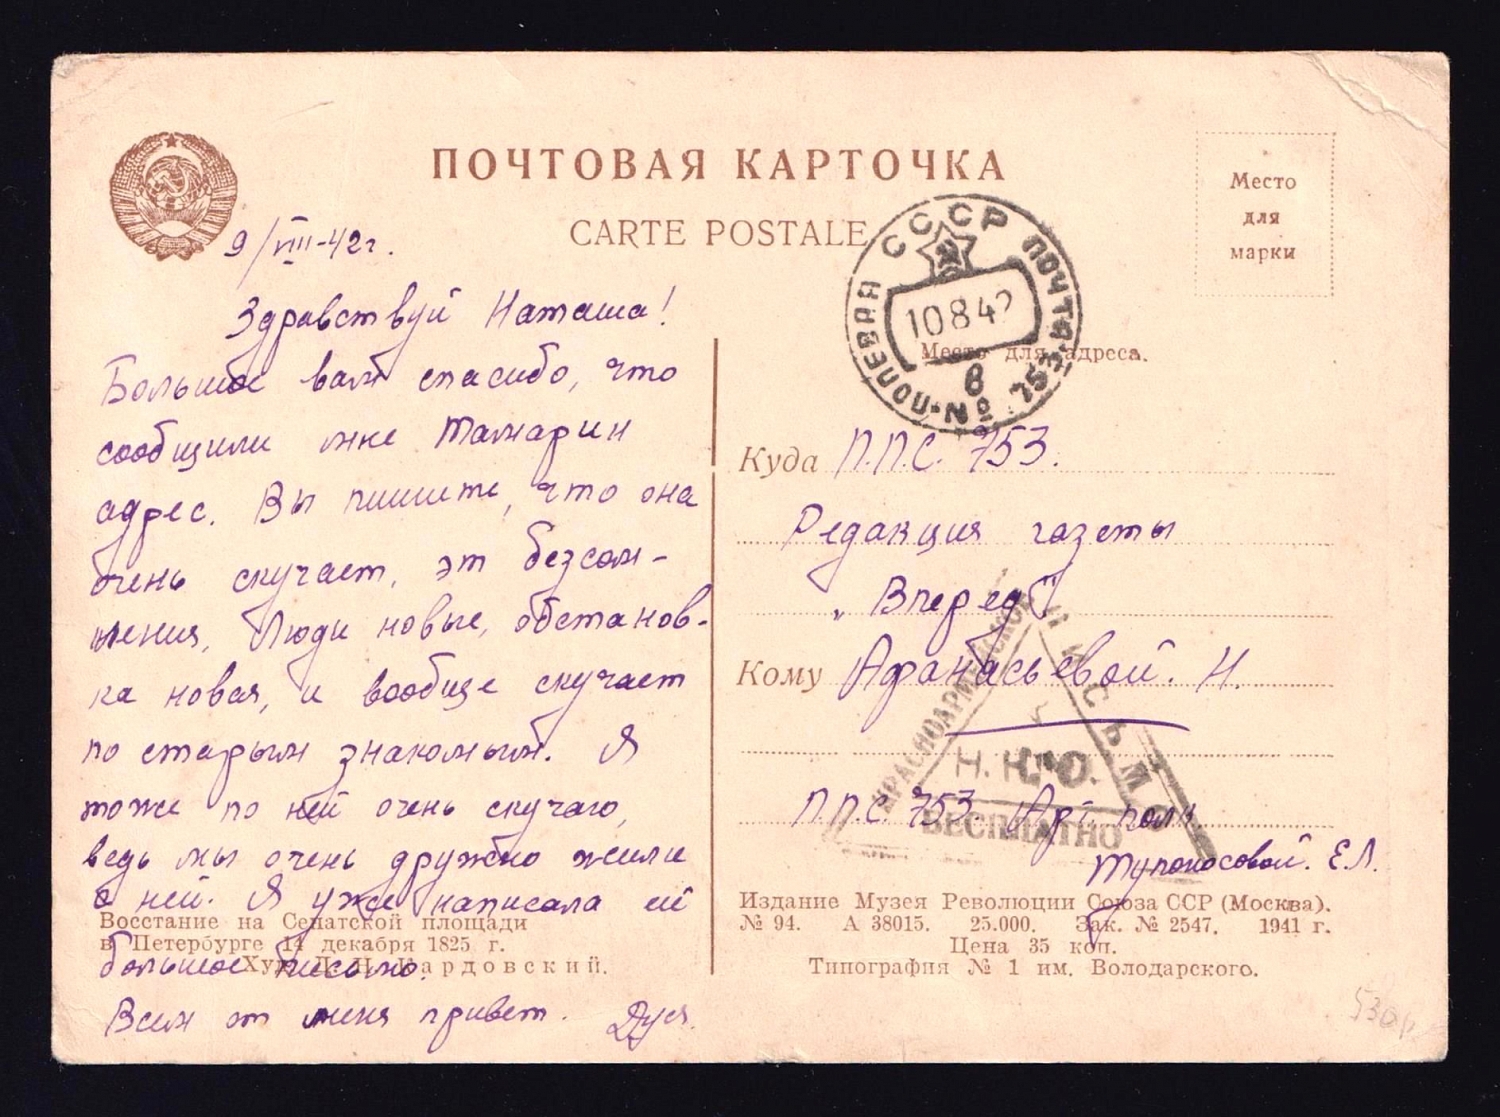 ПОЧТОВАЯ КАРТОЧКА
CARTE POSTALE
Место
для
марки
9/VIII-42г.
Здравствуй Наташа!
Большое вам спасибо, что
сообщили мне Тамарин
адрес. Вы пишите, что она
очень скучает, эт безсом-
нения, Люди новые, обстанов-
ка новая, и вообще скучает
по старым знакомым. Я
тоже по ней очень скучаю,
ведь мы очень дружно жили
с ней. Я уже написала ей
большое письмо.
Всем от меня привет. Дуся.
Восстание на Сенатской площади
в Петербурге 14 декабря 1825 г.
Худ. Д. Н. Кардовский.
СССР
ПОЛЕВАЯ ПОЧТА № 753
10 8 42
в
Место для адреса.
Куда П.П.С. 753.
Редакция газеты
„Вперед"
Кому Афанасьевой. Н.
П.П.С. 753. Арт. полк
Тупоносовой. Е.Л.
КРАСНОАРМЕЙСКОЕ
ПИСЬМО
Н.К.О.
БЕСПЛАТНО
Издание Музея Революции Союза ССР (Москва).
№ 94. А 38015. 25.000. Зак. № 2547. 1941 г.
Цена 35 коп.
Типография № 1 им. Володарского.
530р